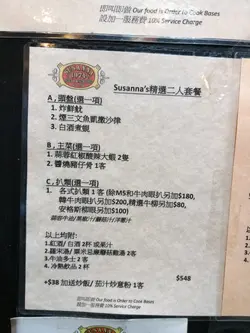 即叫即做 Our food is Order to Cook Bases
設加一服務費 10% Service Charge
Susanna's精選二人套餐
A，頭盤(選一項)
1. 炸鮮魷
2. 煙三文魚凱撒沙律
3. 白酒煮蜆
B，主菜(選一項)
1. 蒜蓉紅椒酸辣大蝦 2隻
2. 醬燒豬仔骨 1客
C，扒類(選一項)
1. 各式扒類 1客 (除M5和牛肉眼扒另加$180,
韓牛肉眼扒另加$200,精選牛柳另加$80,
安格斯柳眼另加$100)
以上均附:
1.紅酒/ 白酒 2杯 或果汁
3. 牛油多士 2客
4. 冷熱飲品 2杯
$548
+$38 加送炒飯/ 茄汁炒意粉 1客
即叫即做 Our food is Order to Cook Bases
設加一服務費 10% Service Charge